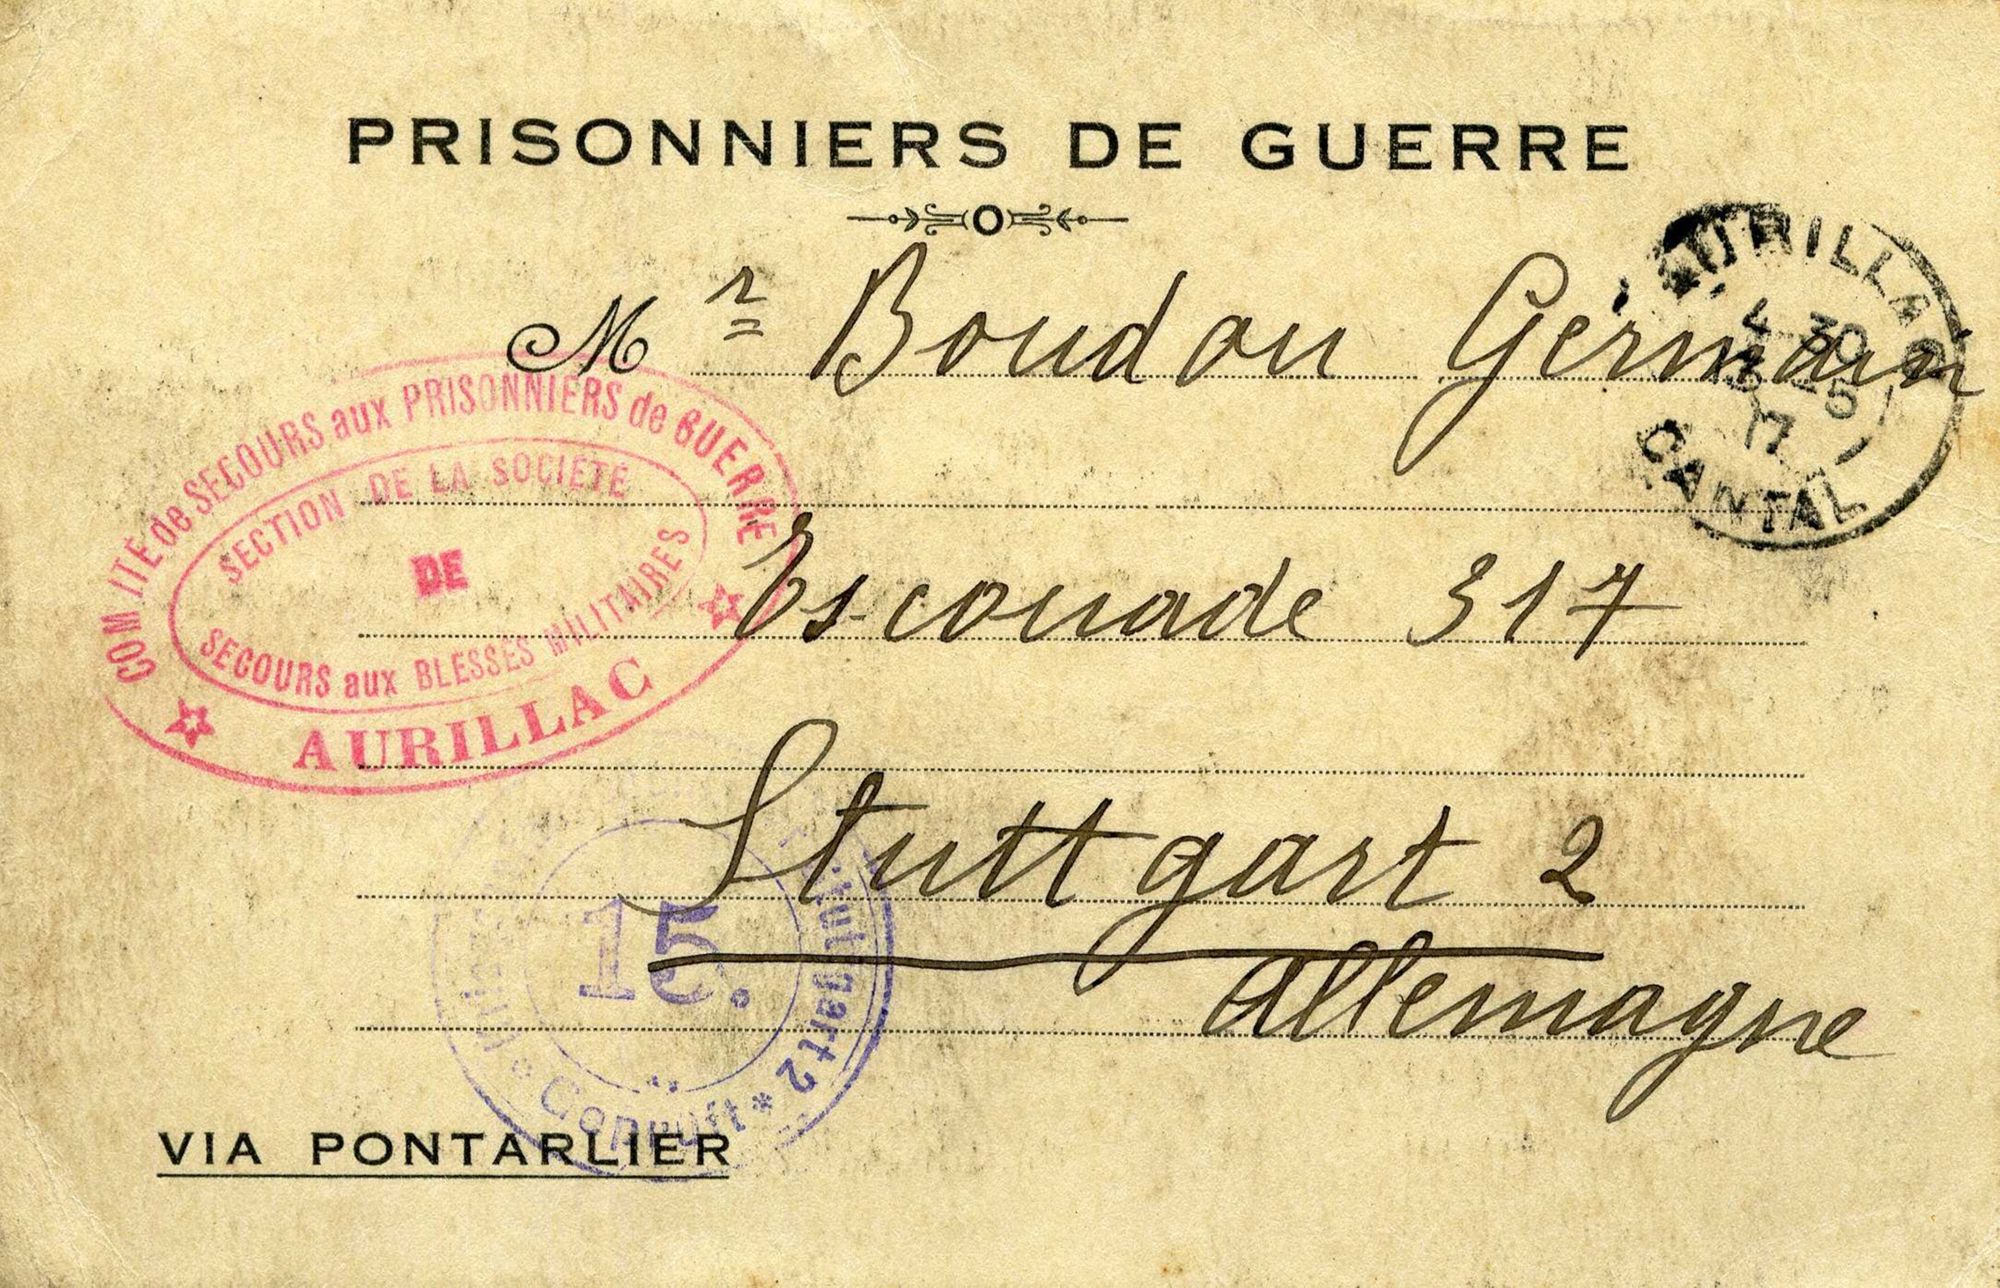 PRISONNIERS DE GUERRE
Mr Boudou Germain
AURILLAC
4 30
25
17
CANTAL
COMITÉ de SECOURS aux PRISONNIERS de GUERRE
SECTION DE LA SOCIÉTÉ
DE
SECOURS aux BLESSÉS MILITAIRES
AURILLAC
Escouade 317
Stuttgart 2
Allemagne
15.
Stuttgart 2 * Geprüft *
VIA PONTARLIER